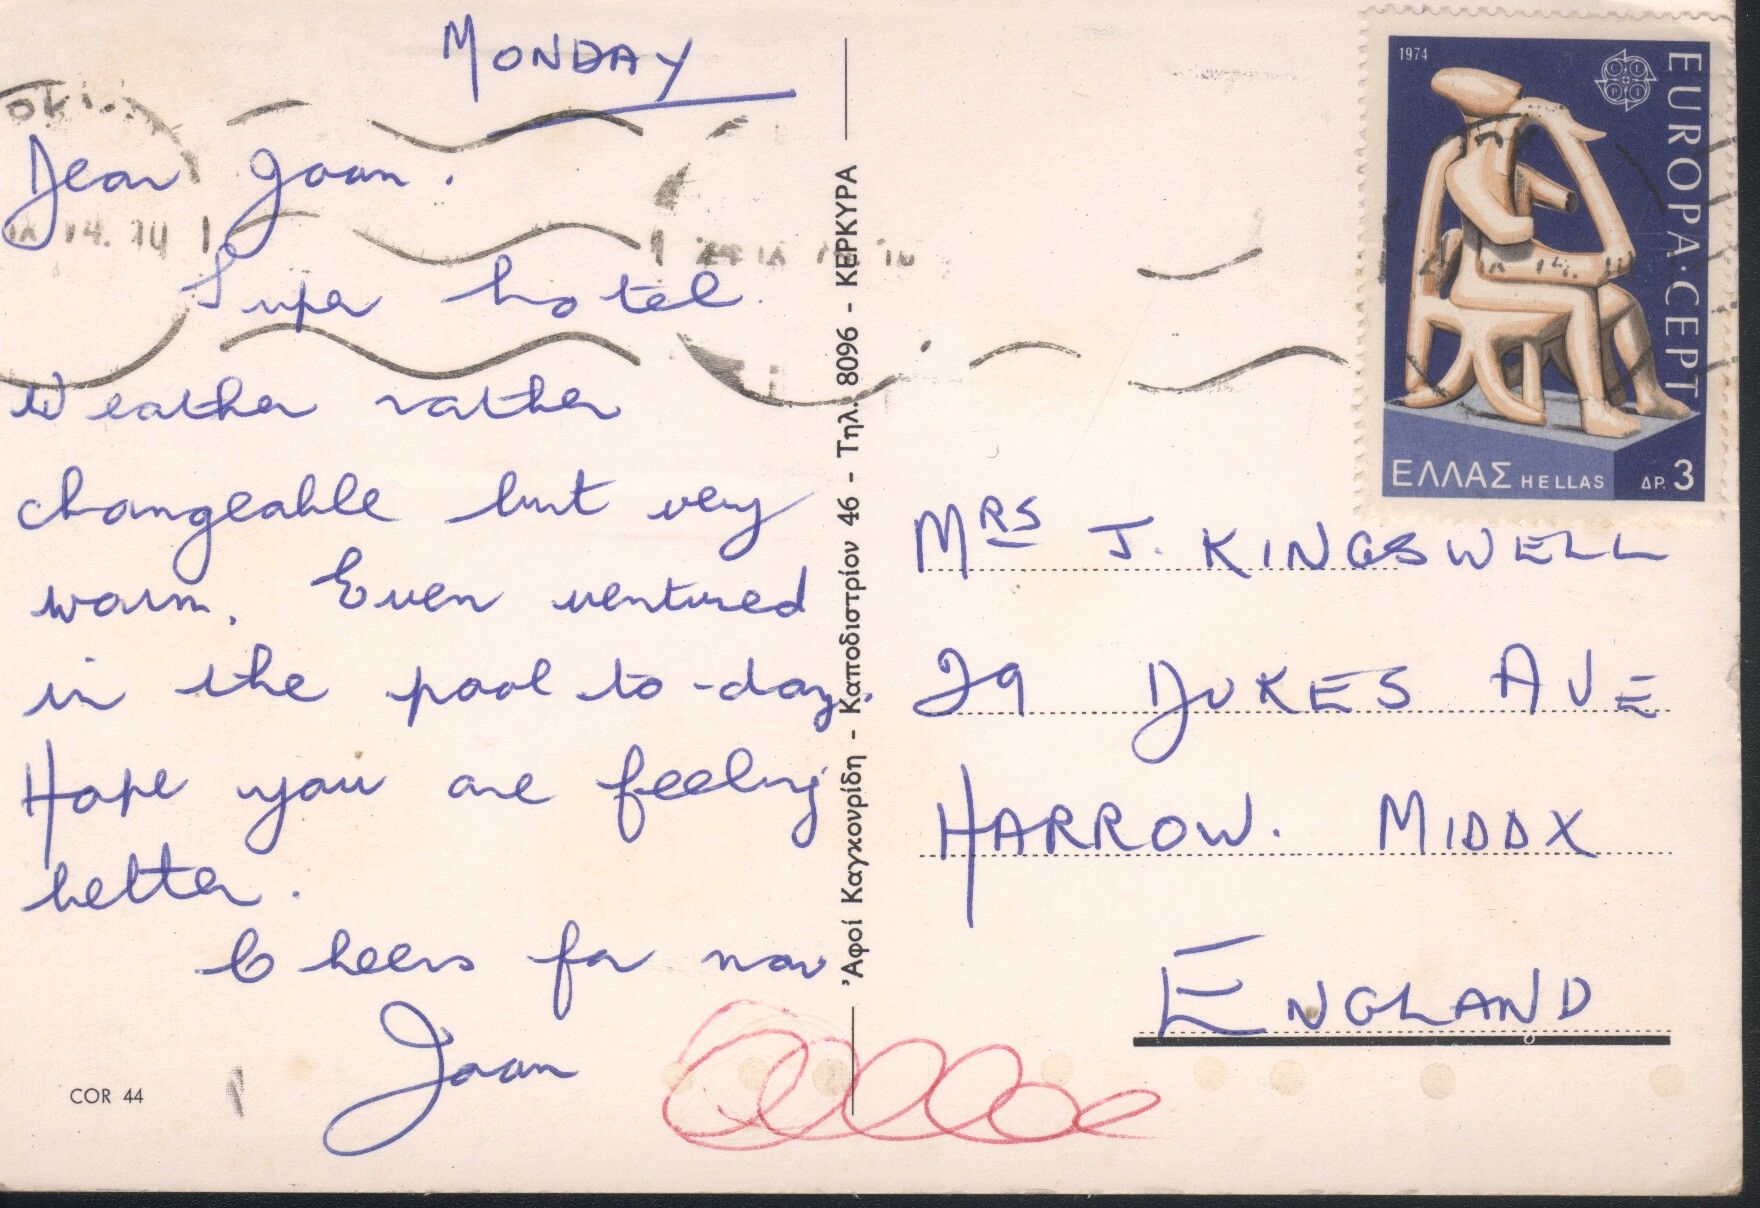 MONDAY
Dear Joan.
Super hotel.
Weather rather
changeable but very
warm. Even ventured
in the pool to-day.
Hope you are feeling
better.
Cheers for now
Joan
COR 44
'Αφοί Καγκουρίδη - Καποδιστρίου 46 - Τηλ. 8096 - ΚΕΡΚΥΡΑ
1974
EUROPA·CEPT
ΕΛΛΑΣ HELLAS ΔΡ. 3
MRS J. KINGSWELL
29 DUKES AVE
HARROW. MIDDX
ENGLAND